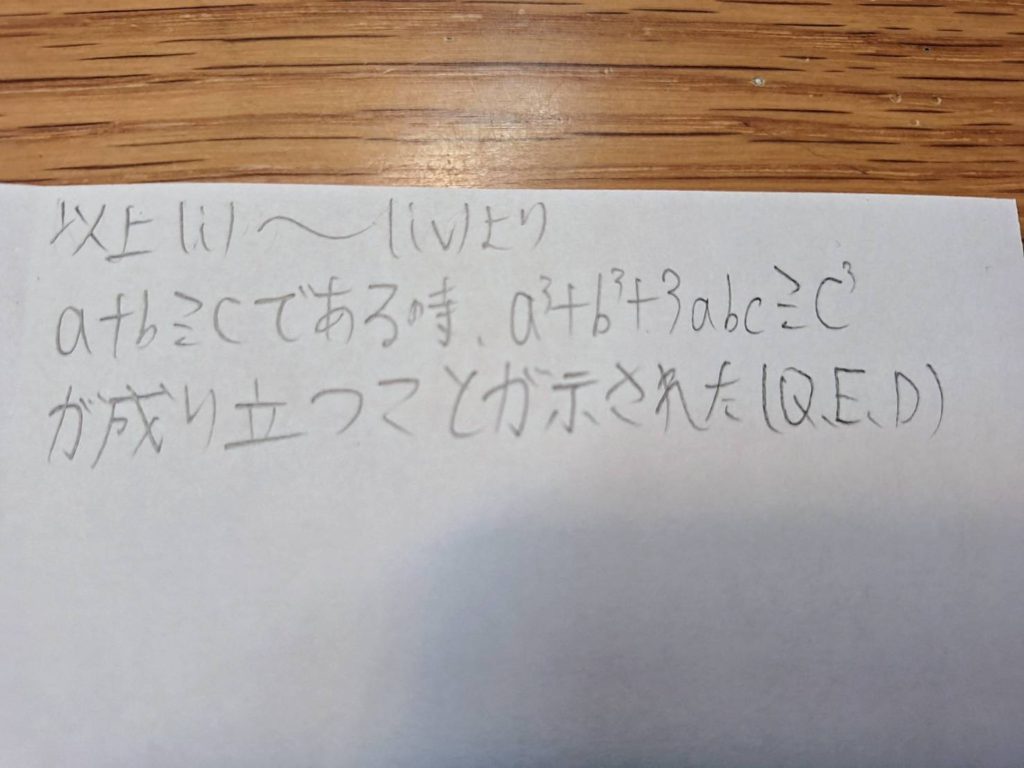 以上(i)〜(iv)より
a+b≧cである時、a³+b³+3abc≧c³
が成り立つことが示された(Q.E.D)